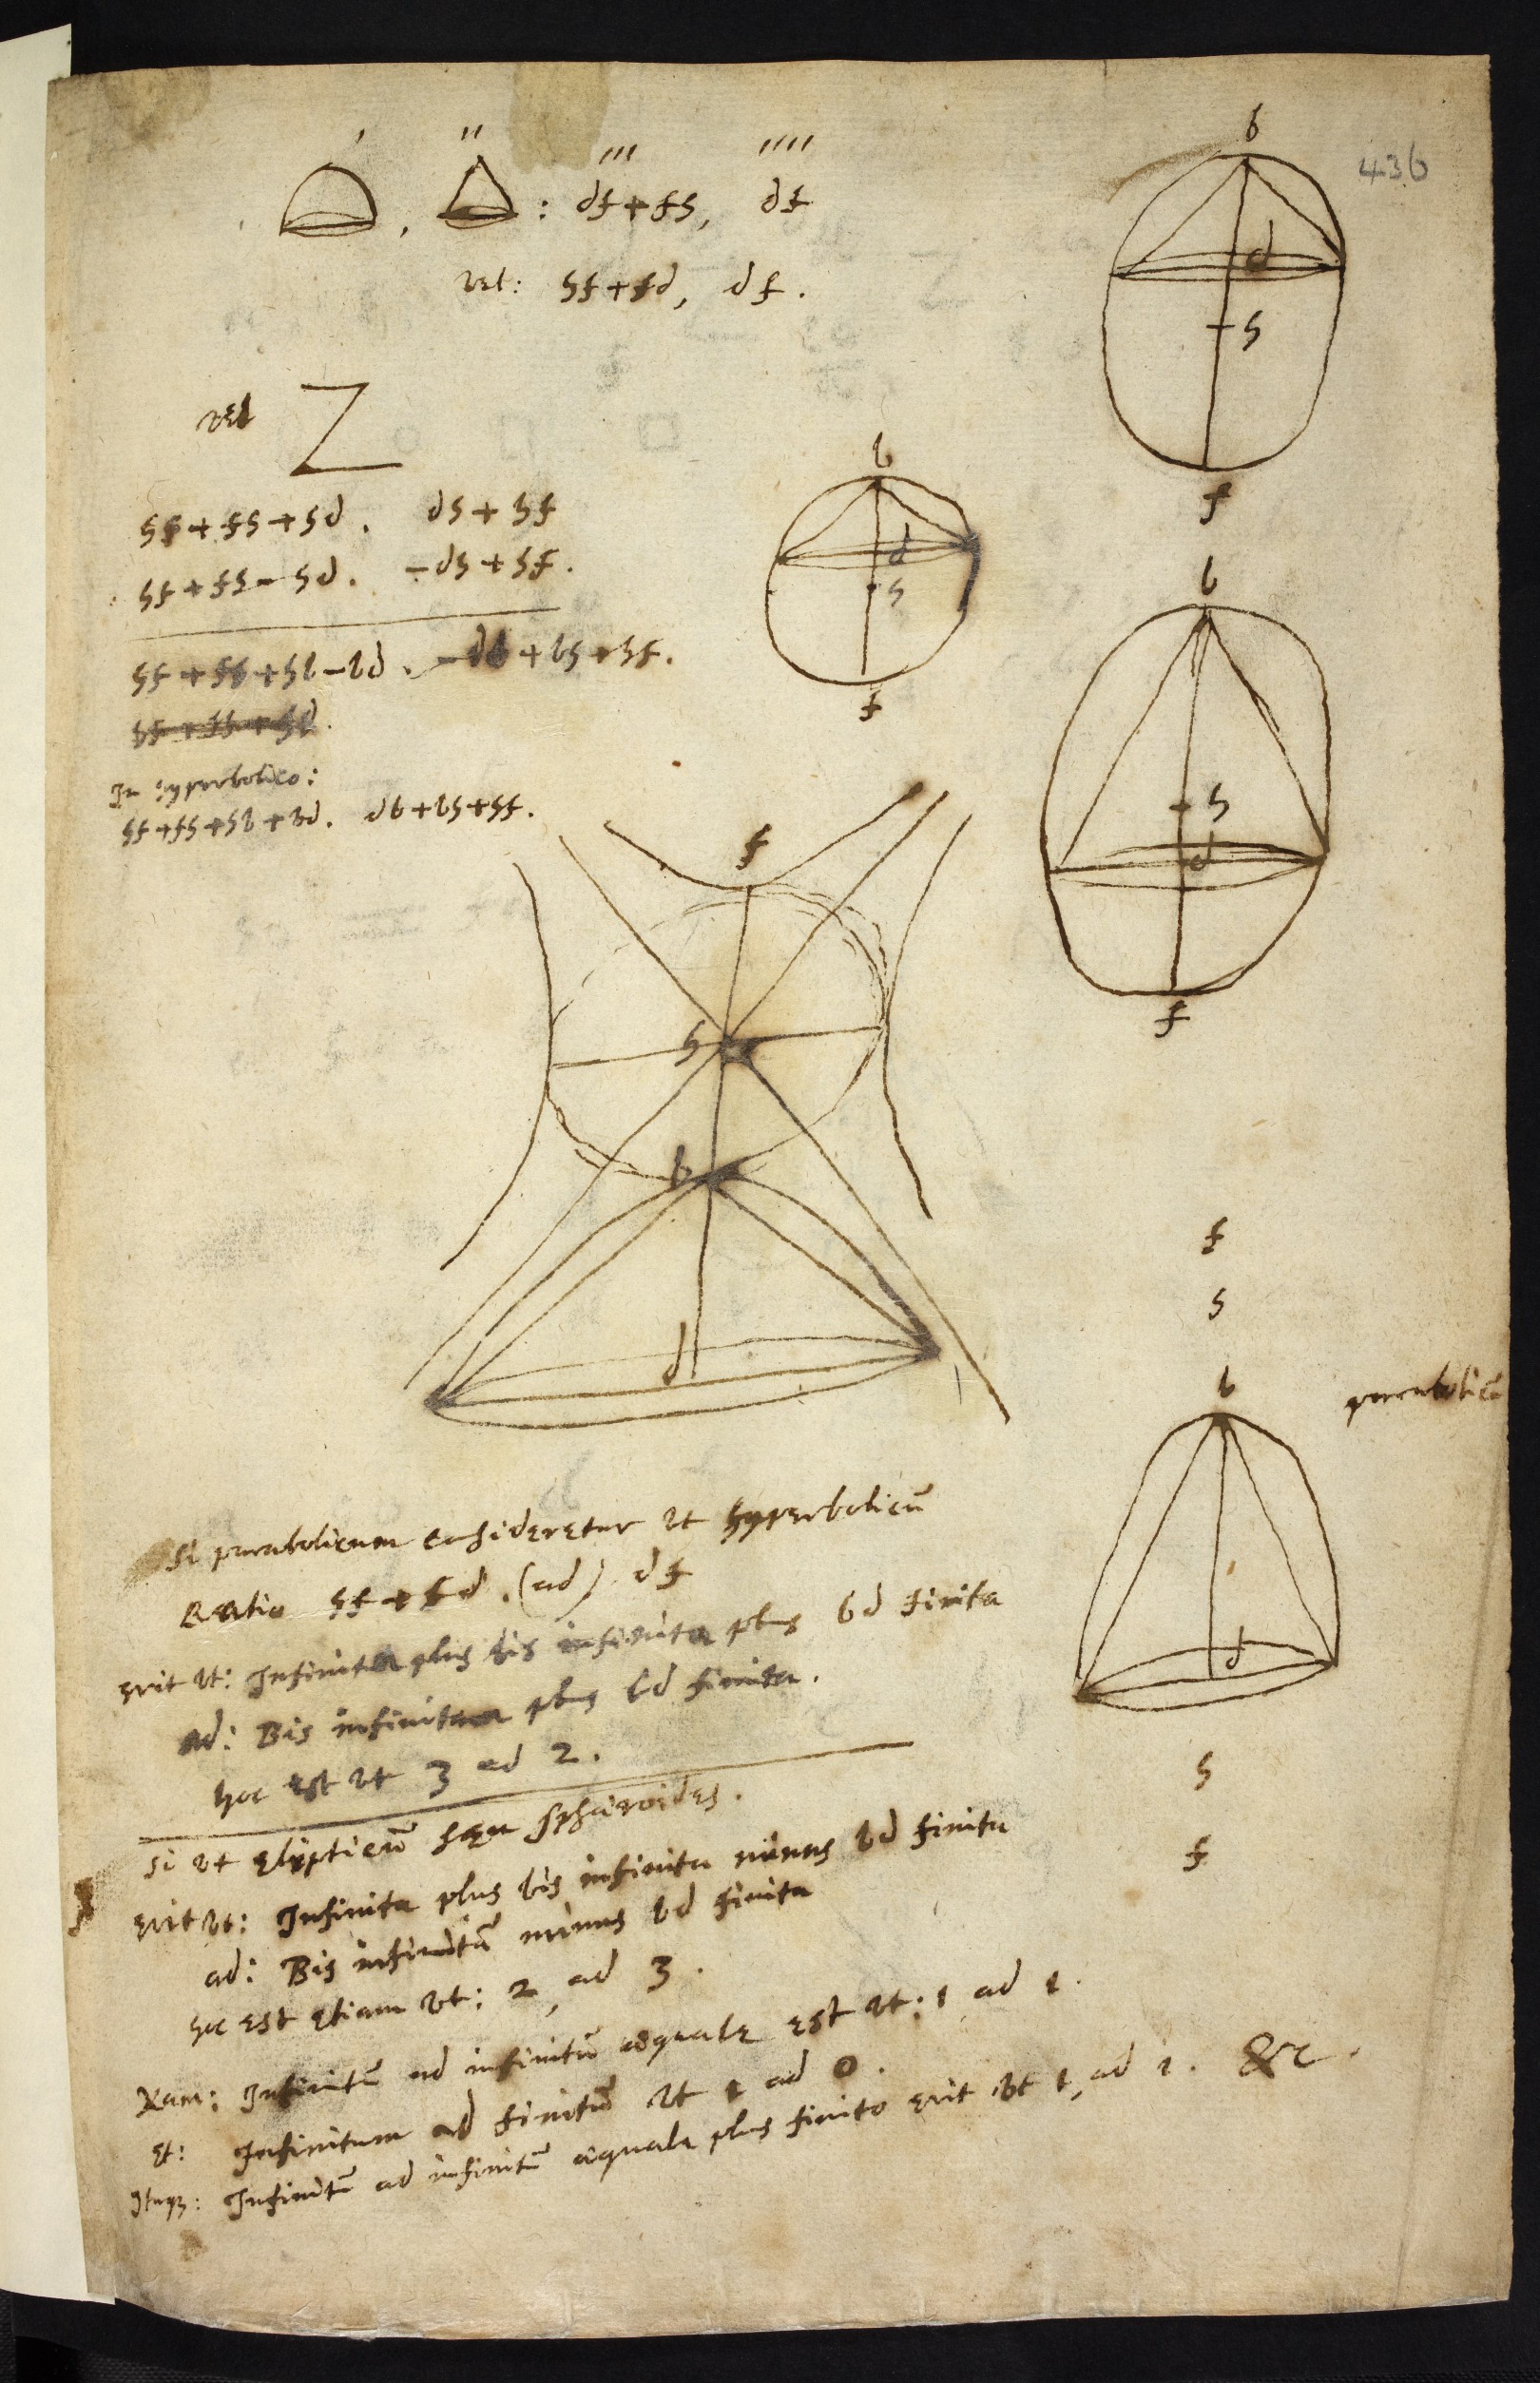 436
' '' ''' ''''
, : df+fh, df
vel: hf+fd, df.
vel
hf+fh+hd. dh+hf
hf+fh-hd. -dh+hf.
hf+fh+hb-bd. -db+bh+hf.
hf+fh+hd.
In hyperbolico:
hf+fh+hb+bd. db+bh+hf.
b
d
h
f
b
d
h
f
b
h
d
f
f
h
b
d
f
h
b
parabolicū
d
h
f
Si parabolicum consideretur ut hyperbolicū
Ratio hf+fd. (ad) df
erit ut: Infinita plus bis infinita plus bd finita
ad: Bis infinitam plus bd finita.
hoc est ut 3 ad 2.
Si ut elipticū seu sphæroides.
erit ut: Infinita plus bis infinita minus bd finita
ad: Bis infinitā minus bd finita
hoc est etiam ut: 2, ad 3.
Nam: Infinitū ad infinitū æquale est ut: 1 ad 1.
et: Infinitum ad finitū ut 1 ad 0.
Itaqz: Infinitū ad infinitū æquale plus finito erit ut 1, ad 1. &c.